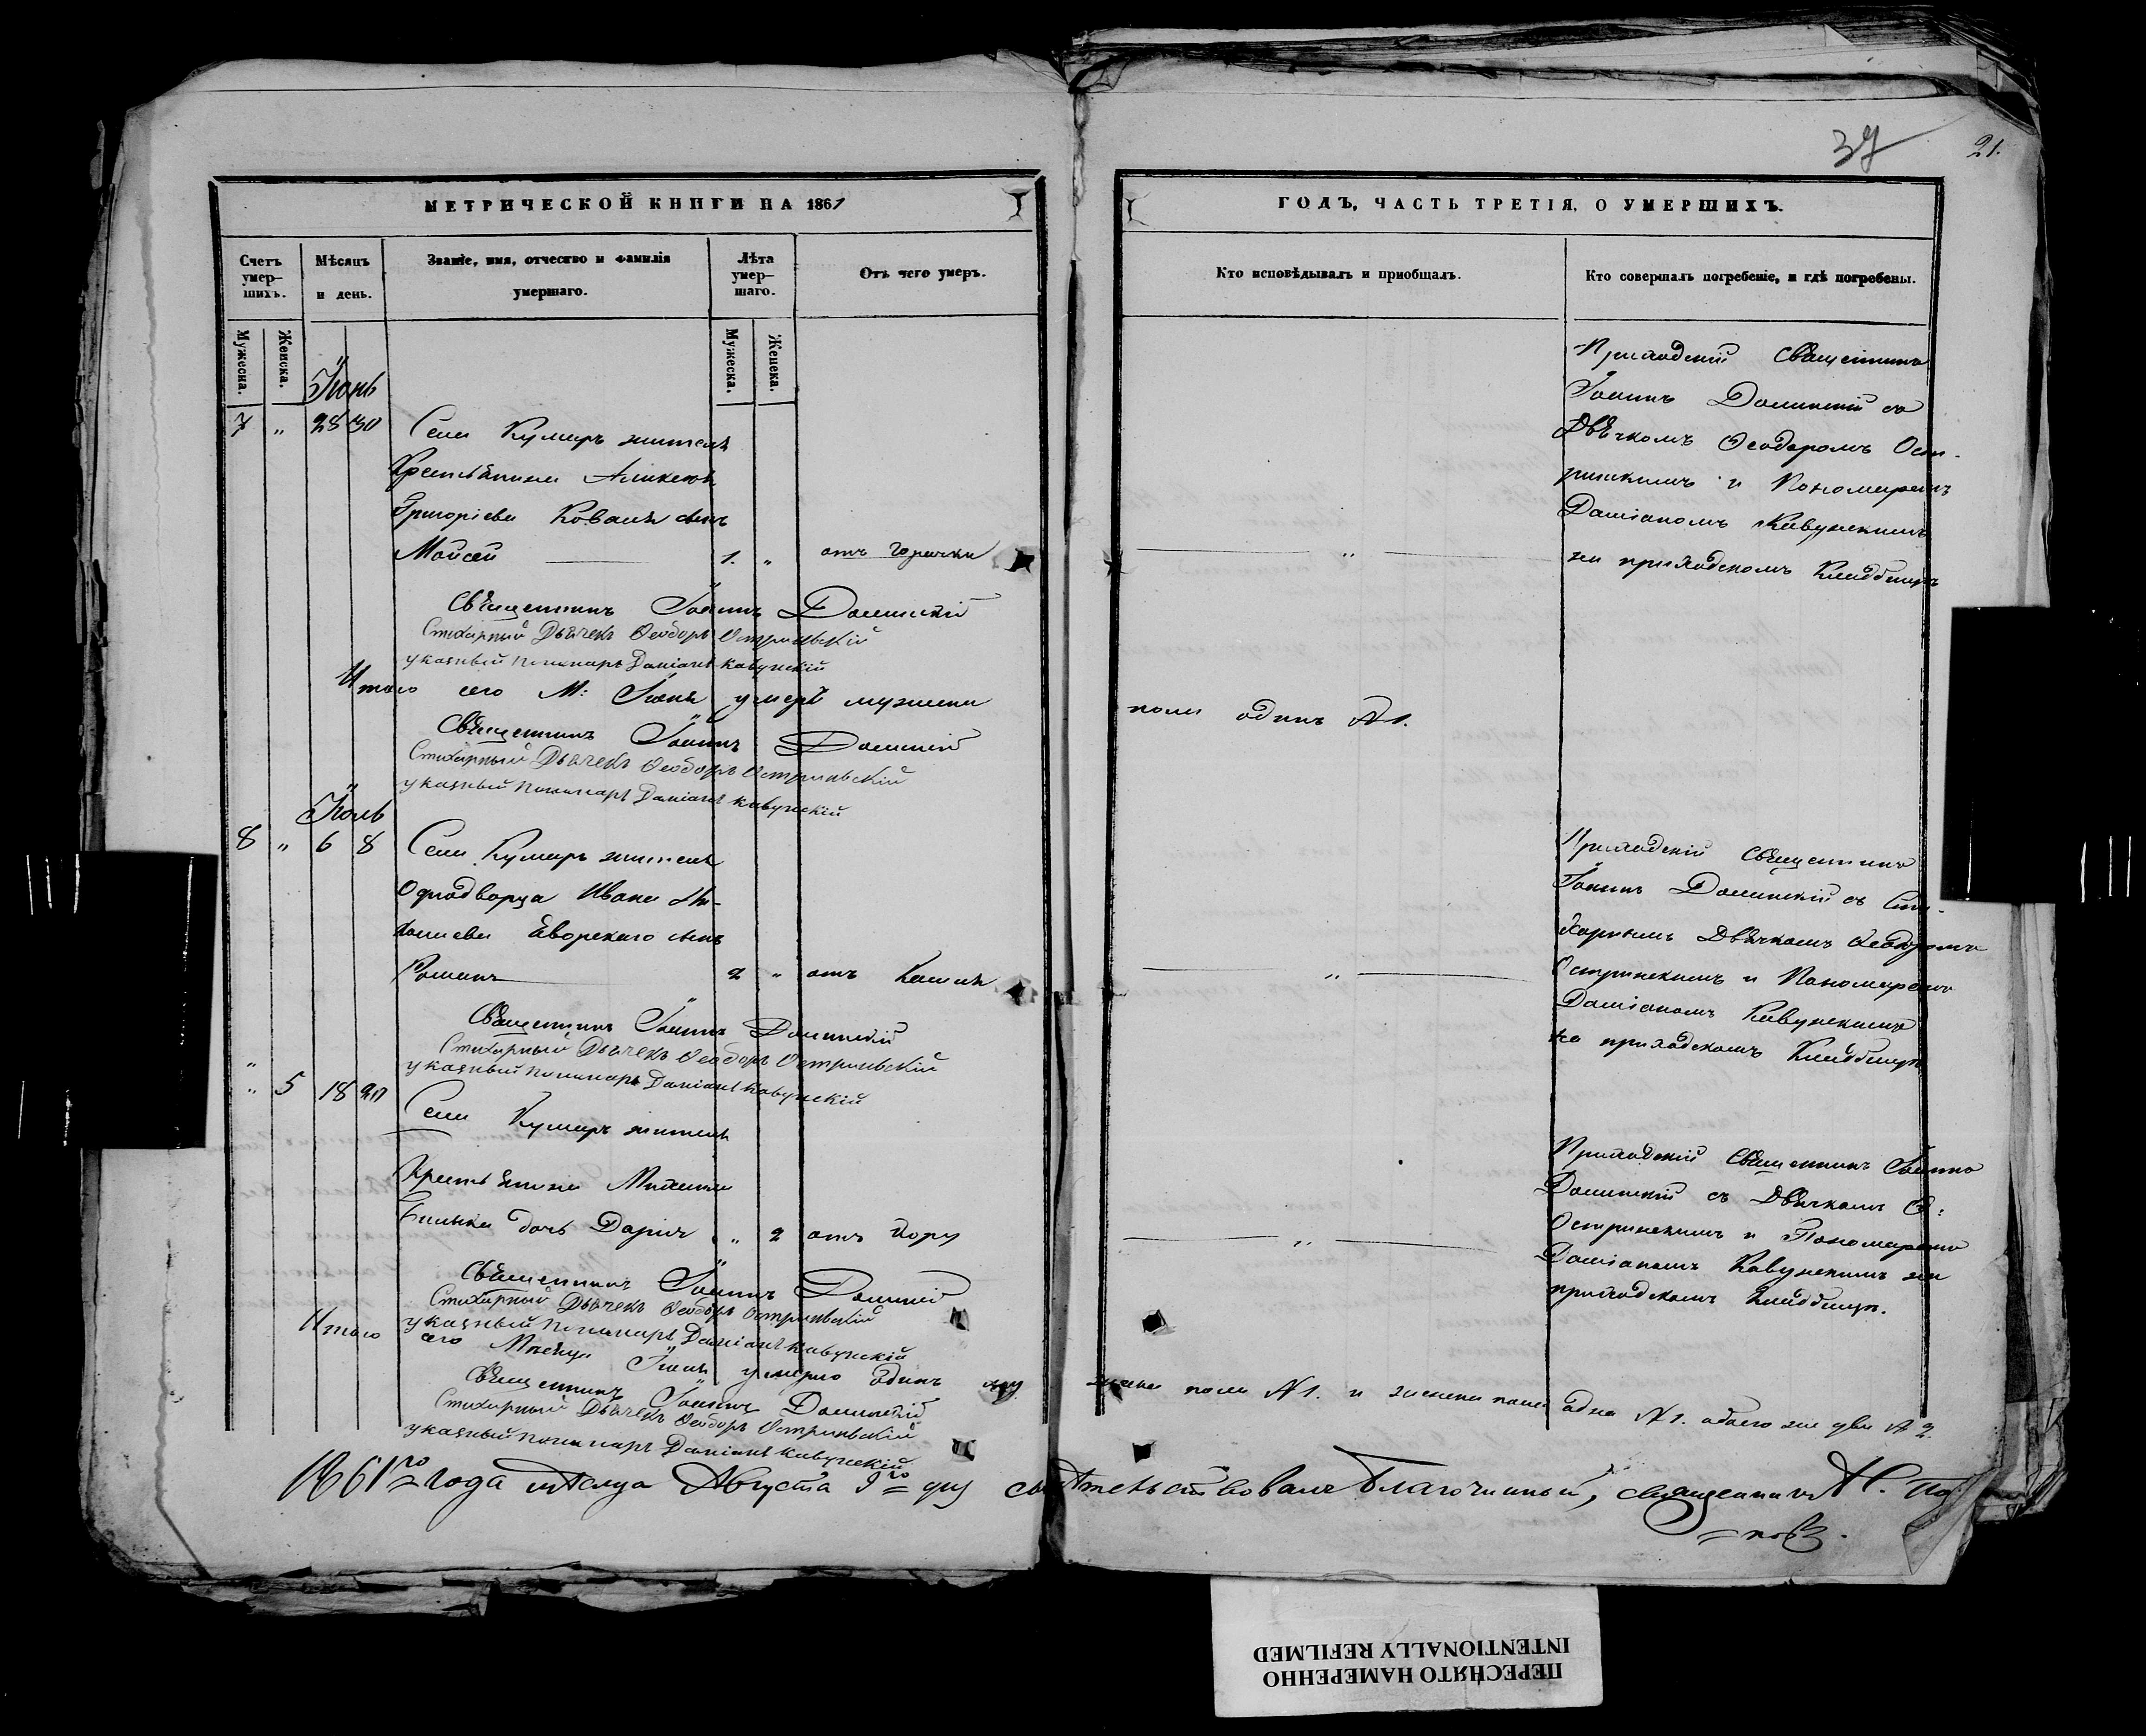 37
21.
МЕТРИЧЕСКОЙ КНИГИ НА 1861
ГОДЪ, ЧАСТЬ ТРЕТІЯ, О УМЕРШИХЪ.
Счетъ умер-шихъ.
Мѣсяцъ и день.
Званіе, имя, отчество и фамилія умершаго.
Лѣта умер-шаго.
Отъ чего умеръ.
Кто исповѣдывалъ и пріобщалъ.
Кто совершалъ погребеніе, и гдѣ погребены.
Мужеска.
Женска.
Мужеска.
Женска.
Іюнь
7 " 28 30
Села Кумаръ жителя
Крестьянина
Григоріева Коваля сынъ
Мойсей 1. " отъ горячки
"
Приходскій Священникъ
Іоаннъ Долинскій съ
Дьячкомъ Ѳеодоромъ Ост-
ринскимъ и Пономаремъ
Даміаномъ Кавунскимъ
на приходскомъ Кладбищѣ
Священникъ Іоаннъ Долинскій
Стихарный Дьячекъ Ѳеодоръ Остриевскій
указный пономарь Даміанъ Кавунскій
Итого сего М: Іюня умеръ мужеска
пола одинъ №1.
Священникъ Іоаннъ Долинскій
Стихарный Дьячекъ Ѳеодоръ Остриевскій
указный пономарь Даміанъ Кавунскій
Іюль
8 " 6 8
Села Кумаръ жителя
Однодворца Ивана
Яворскаго сынъ
Романъ 2 " отъ Кашля
"
Приходскій Священникъ
Іоаннъ Долинскій съ Сти-
харнымъ Дьячкомъ Ѳеодоромъ
Остринскимъ и Пономаремъ
Даміаномъ Кавунскимъ
на приходскомъ Кладбищѣ
Священникъ Іоаннъ Долинскій
Стихарный Дьячекъ Ѳеодоръ Остриевскій
указный пономарь Даміанъ Кавунскій
" 5 18 20
Села Кумаръ жителя
Крестьянина Михаила
дочь Дарія " 2 отъ
"
Приходскій Священникъ Іоаннъ
Долинскій съ Дьячкомъ Ѳ:
Остринскимъ и Пономаремъ
Даміаномъ Кавунскимъ на
приходскомъ Кладбищѣ.
Священникъ Іоаннъ Долинскій
Стихарный Дьячекъ Ѳеодоръ Остриевскій
указный пономарь Даміанъ Кавунскій
Итого сего Мѣсяца умерло одинъ
пола №1. и женска пола одна №1. обоего же два №2.
Священникъ Іоаннъ Долинскій
Стихарный Дьячекъ Ѳеодоръ Остриевскій
указный пономарь Даміанъ Кавунскій
1861го года мѣсяца Августа дня свидѣтельствовалъ Благочинный, священникъ
ПЕРЕСНЯТО НАМЕРЕННО
INTENTIONALLY REFILMED